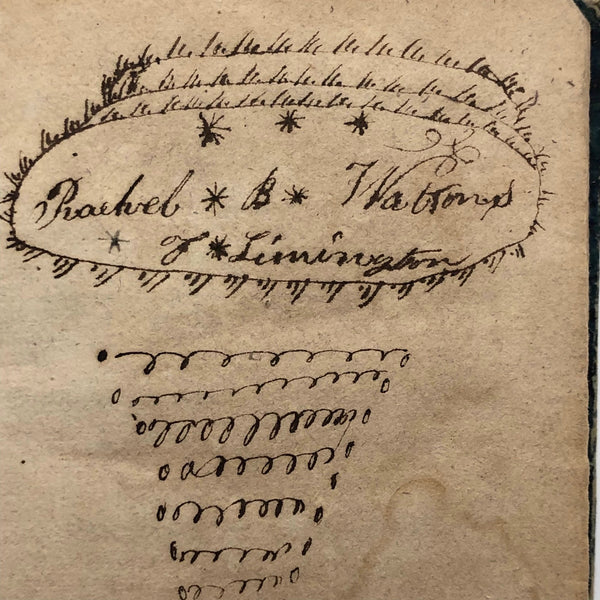 Rachel * B * Watsons
of * Limington